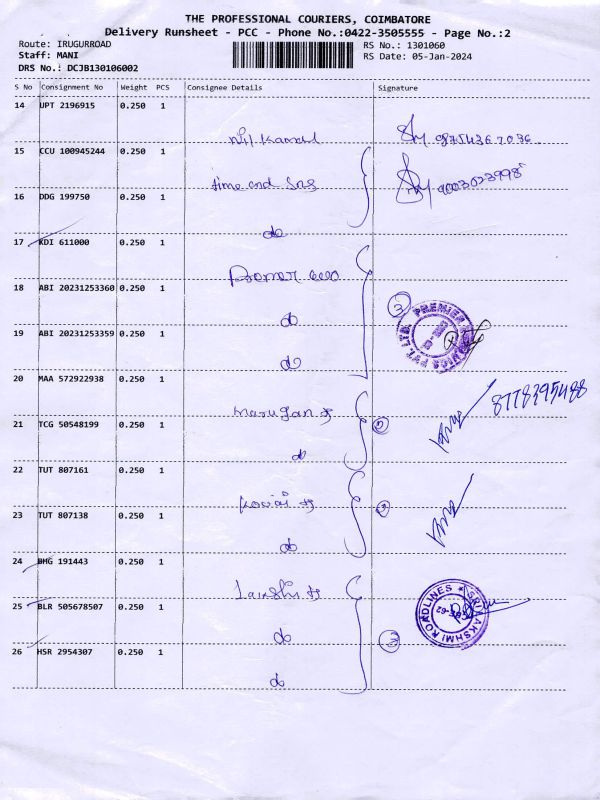 THE PROFESSIONAL COURIERS, COIMBATORE
Delivery Runsheet - PCC - Phone No.:0422-3505555 - Page No.:2
Route: IRUGURROAD
RS No.: 1301060
Staff: MANI
RS Date: 05-Jan-2024
DRS No.: DCJB130106002
S No Consignment No Weight PCS Consignee Details Signature
14 UPT 2196915 0.250 1
Nil kamal 98754367036
15 CCU 100945244 0.250 1
time and sns 9003023998
16 DDG 199750 0.250 1
do
17 KDI 611000 0.250 1
18 ABI 20231253360 0.250 1
do
3
PREMIER PVT. LTD.
19 ABI 20231253359 0.250 1
do
20 MAA 572922938 0.250 1
Marugan 8778395488
21 TCG 50548199 0.250 1
do
22 TUT 807161 0.250 1
23 TUT 807138 0.250 1
do
24 BMG 191443 0.250 1
Lakshi
SRI LAKSHMI ROADLINES
25 BLR 505678507 0.250 1
do
26 HSR 2954307 0.250 1
do